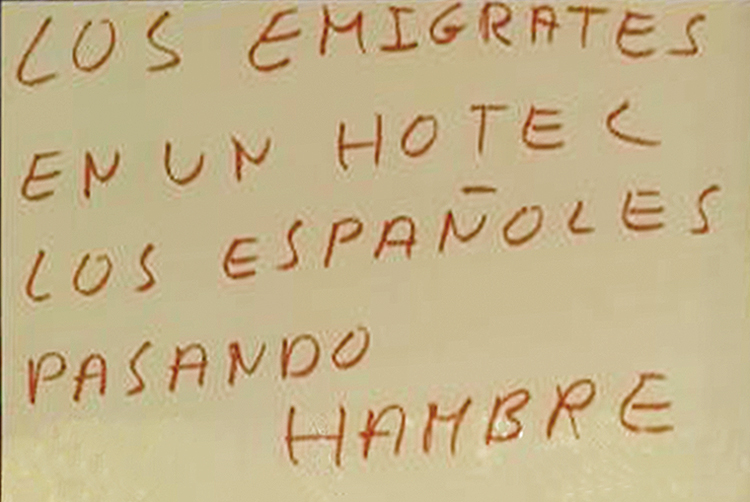 LOS EMIGRATES
EN UN HOTEL
LOS ESPAÑOLES
PASANDO
HAMBRE